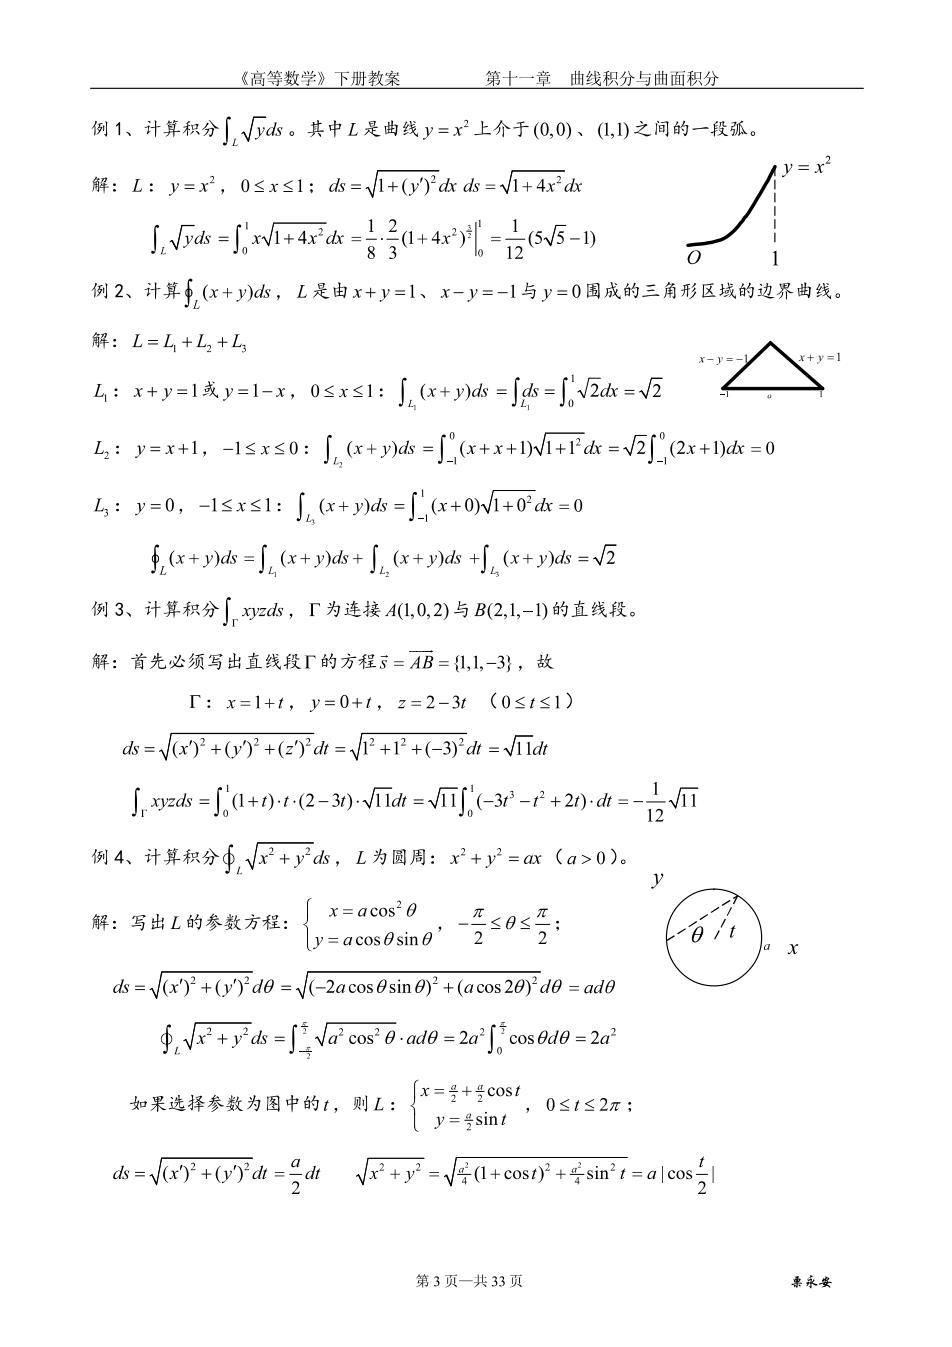 《高等数学》下册教案 第十一章 曲线积分与曲面积分
例 1、计算积分∫_L √y ds 。其中 L 是曲线 y = x² 上介于 (0,0) 、 (1,1) 之间的一段弧。
解： L ： y = x² ， 0 ≤ x ≤ 1； ds = √(1+(y′)²) dx ds = √(1+4x²) dx
y = x²
∫_L √y ds = ∫_0^1 x√(1+4x²) dx = 1/8 · 2/3 (1+4x²)^(3/2) |_0^1 = 1/12 (5√5 −1)
O 1
例 2、计算∮_L (x+y)ds ， L 是由 x+y=1、 x−y=−1与 y=0围成的三角形区域的边界曲线。
解： L = L₁ + L₂ + L₃
x−y=−1 x+y=1
L₁ ： x+y=1或 y=1−x ， 0 ≤ x ≤ 1： ∫_{L₁} (x+y)ds = ∫_{L₁} ds = ∫_0^1 √2 dx = √2
−1 o 1
L₂ ： y=x+1， −1 ≤ x ≤ 0： ∫_{L₂} (x+y)ds = ∫_{−1}^0 (x+x+1)√(1+1²) dx = √2 ∫_{−1}^0 (2x+1)dx = 0
L₃ ： y=0， −1 ≤ x ≤ 1： ∫_{L₃} (x+y)ds = ∫_{−1}^1 (x+0)√(1+0²) dx = 0
∮_L (x+y)ds = ∫_{L₁} (x+y)ds + ∫_{L₂} (x+y)ds + ∫_{L₃} (x+y)ds = √2
例 3、计算积分∫_Γ xyzds ， Γ 为连接 A(1,0,2) 与 B(2,1,−1) 的直线段。
解：首先必须写出直线段Γ 的方程 s⃗ = AB⃗ = {1,1,−3} ，故
Γ： x=1+t ， y=0+t ， z=2−3t （0 ≤ t ≤ 1）
ds = √((x′)²+(y′)²+(z′)²) dt = √(1²+1²+(−3)²) dt = √11 dt
∫_Γ xyzds = ∫_0^1 (1+t)·t·(2−3t)·√11 dt = √11 ∫_0^1 (−3t³−t²+2t)·dt = −1/12 √11
例 4、计算积分∮_L √(x²+y²) ds ， L 为圆周： x²+y²=ax （a>0）。
y
解：写出 L 的参数方程： { x = a cos²θ y = a cosθ sinθ ， −π/2 ≤ θ ≤ π/2 ；
θ t a x
ds = √((x′)²+(y′)²) dθ = √((−2a cosθ sinθ)²+(a cos 2θ)²) dθ = adθ
∮_L √(x²+y²) ds = ∫_{−π/2}^{π/2} √(a² cos²θ) · adθ = 2a² ∫_0^{π/2} cosθdθ = 2a²
如果选择参数为图中的 t ，则 L ： { x = a/2 + a/2 cos t y = a/2 sin t ， 0 ≤ t ≤ 2π ；
ds = √((x′)²+(y′)²) dt = a/2 dt √(x²+y²) = √(a²/4 (1+cos t)² + a²/4 sin² t) = a | cos t/2 |
第 3 页—共 33 页 栗永安